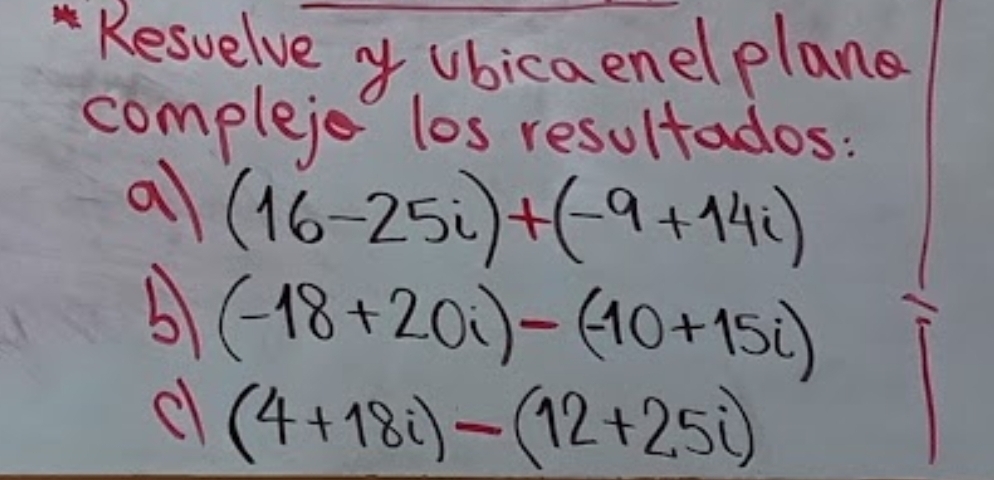 * Resuelve y ubica en el plano
complejo los resultados:
a) (16-25i)+(-9+14i)
b) (-18+20i)-(-10+15i)
c) (4+18i)-(12+25i)